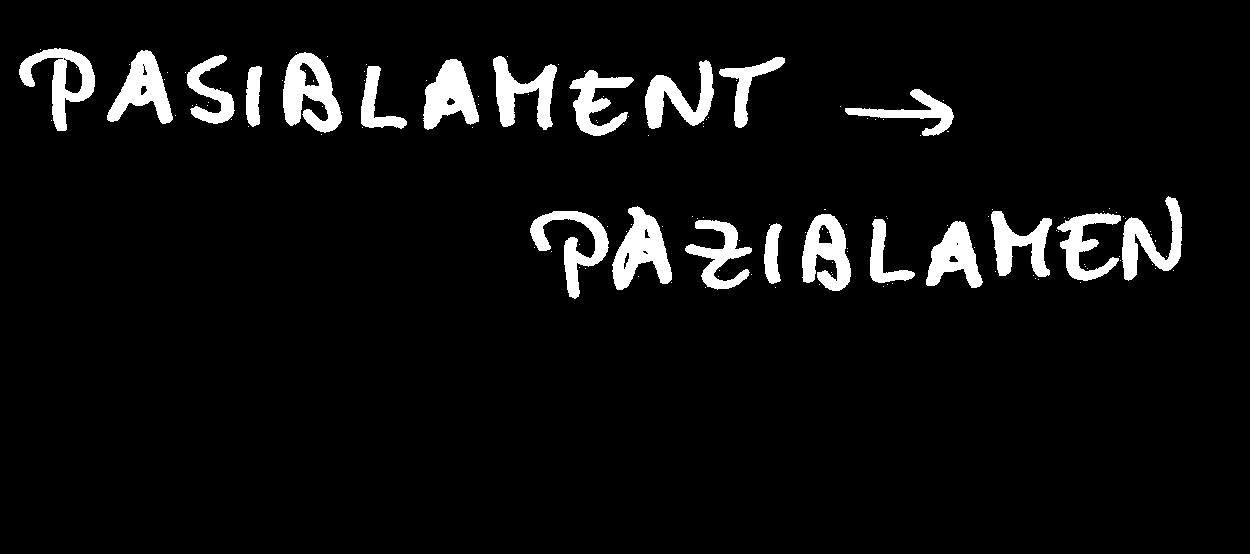 PASIBLAMENT →
PAZIBLAMEN